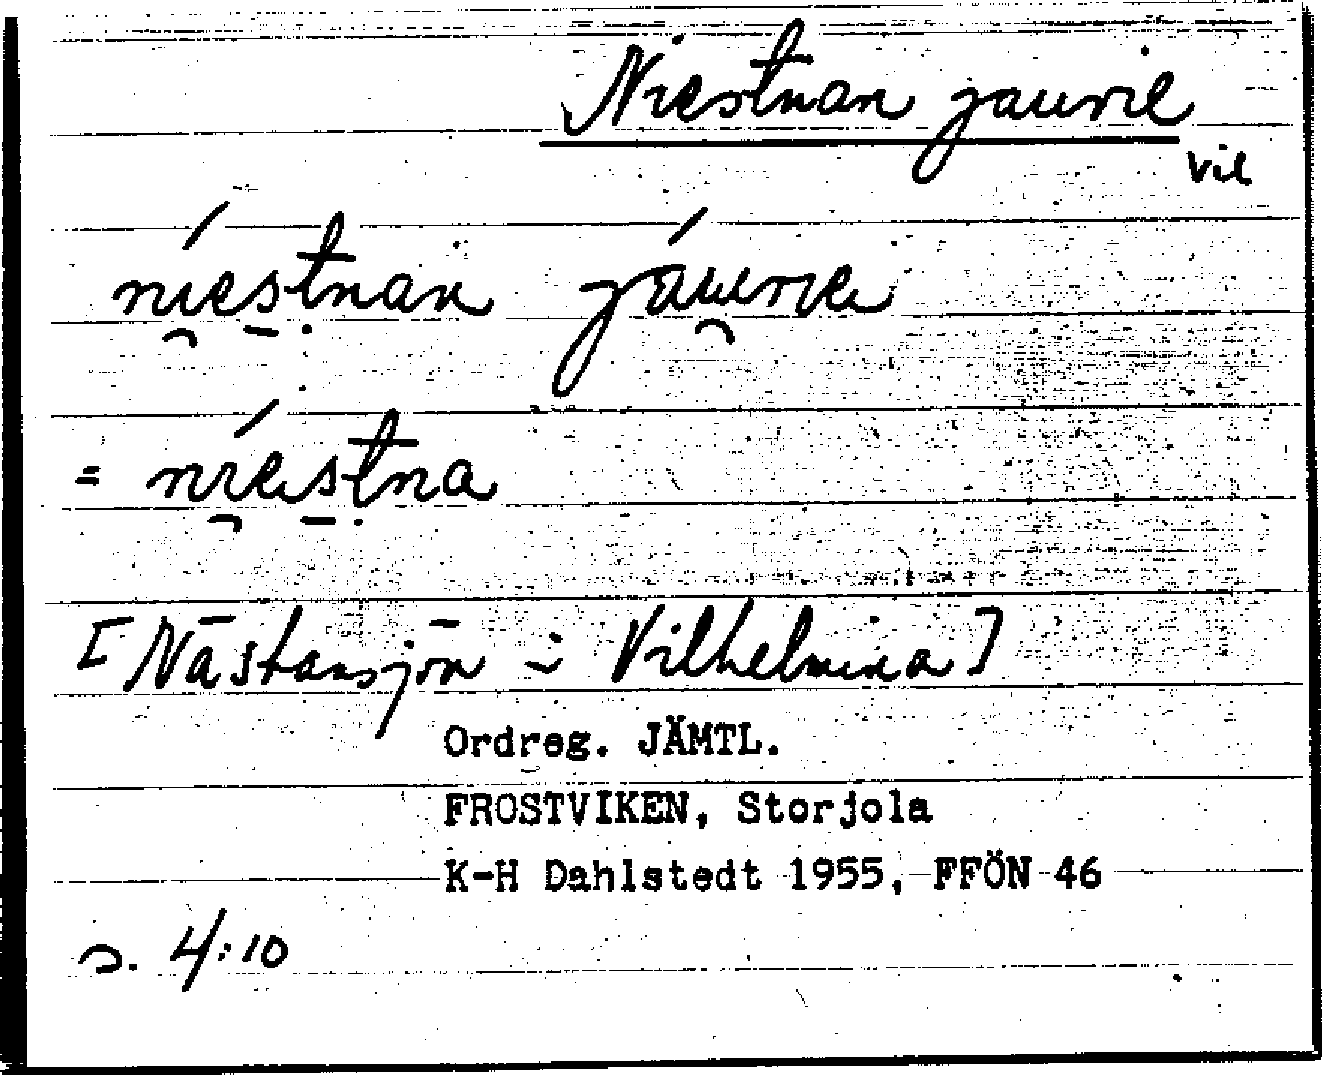 Niestnan jaurie
vil
níe̯s̱ṭnan jáu̯rie
= níe̯s̱ṭna
[Nästansjön i Vilhelmina]
Ordreg. JÄMTL.
FROSTVIKEN, Storjola
K-H Dahlstedt 1955, FFÖN 46
s. 4:10